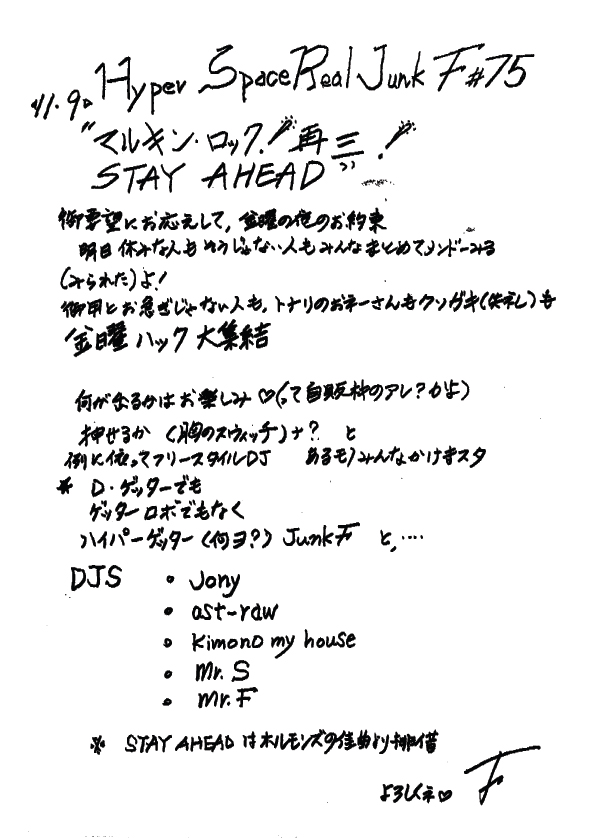 Hyper Space Real Junk F #75
11.9.
"マルキン・ロック!再三"!
STAY AHEAD
御要望にお応えして,金曜の夜のお約束
明日休みな人もそうじゃない人もみんなまとめてメンドーみる
(みられた)よ!
御用とお急ぎじゃない人も,トナリのおネーさんもクソガキ(失礼)も
金曜ハック大集結
何が出るかはお楽しみ♡(って自販神のアレ?かよ)
押せるか(胸のスウィッチ)ナ? と
例に依ってフリースタイルDJ あるモノみんなかけきスタ
* D・ゲッターでも
ゲッターロボでもなく
ハイパーゲッター(何ヨ?) Junk F と,....
DJS • Jony
• ast-raw
• Kimono my house
• Mr. S
• Mr. F
* STAY AHEAD はホルモンズの佳曲より拝借
よろしくネ♡ F